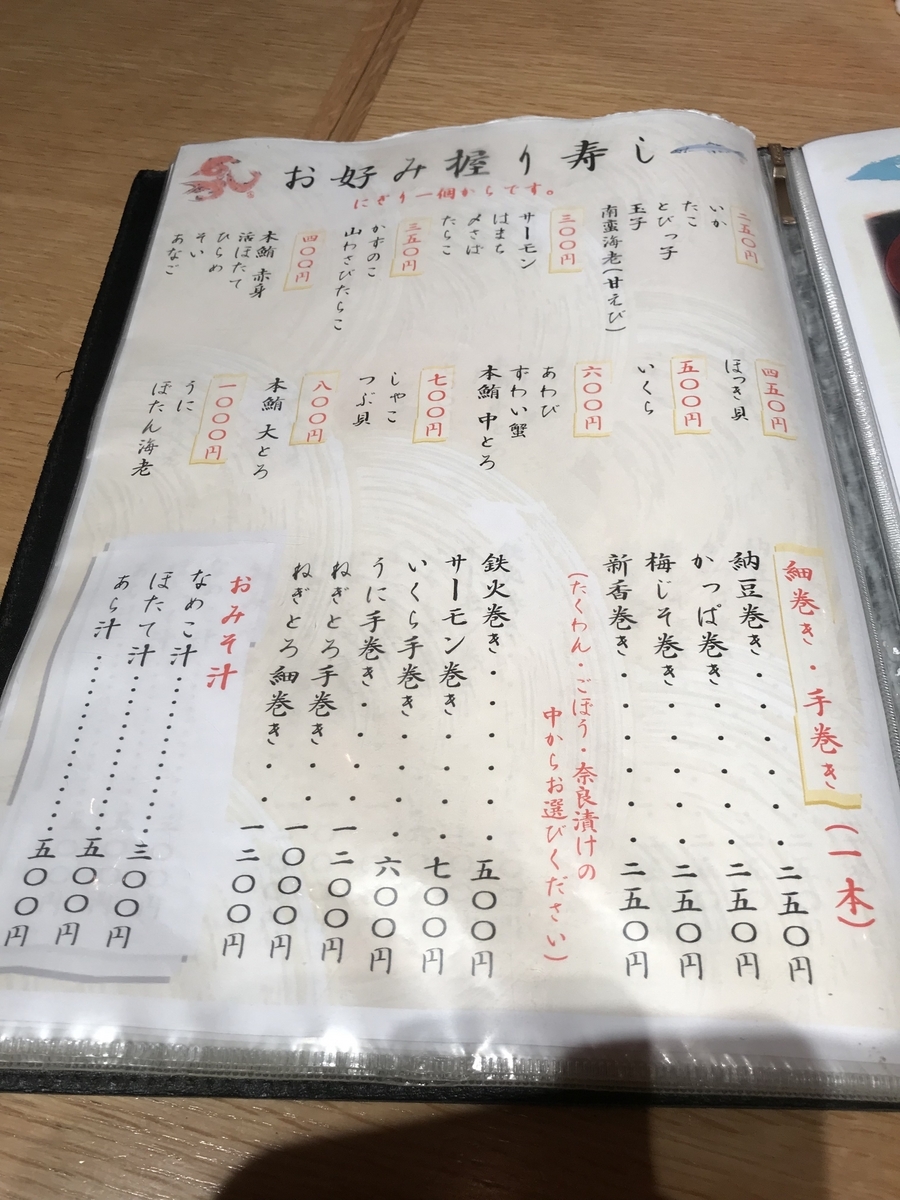 お好み握り寿し
にぎり一個からです。
二五〇円
いか
たこ
とびっ子
玉子
南蛮海老(甘えび)
三〇〇円
サーモン
はまち
〆さば
たらこ
三五〇円
かずのこ
山わさびたらこ
四〇〇円
本鮪 赤身
活ほたて
ひらめ
そい
あなご
四五〇円
ほっき貝
五〇〇円
いくら
六〇〇円
あわび
ずわい蟹
本鮪 中とろ
七〇〇円
しゃこ
つぶ貝
八〇〇円
本鮪 大とろ
一〇〇〇円
うに
ぼたん海老
細巻き・手巻き(一本)
納豆巻き・・・・二五〇円
かっぱ巻き・・・・二五〇円
梅じそ巻き・・・・二五〇円
新香巻き・・・・・二五〇円
(たくわん・ごぼう・奈良漬けの
中からお選びください)
鉄火巻き・・・・・・五〇〇円
サーモン巻き・・・・七〇〇円
いくら手巻き・・・・六〇〇円
うに手巻き・・・・一二〇〇円
ねぎとろ手巻き・・一〇〇〇円
ねぎとろ細巻き・・一二〇〇円
おみそ汁
なめこ汁・・・・・・・・・・三〇〇円
ほたて汁・・・・・・・・・・五〇〇円
あら汁・・・・・・・・・・・五〇〇円